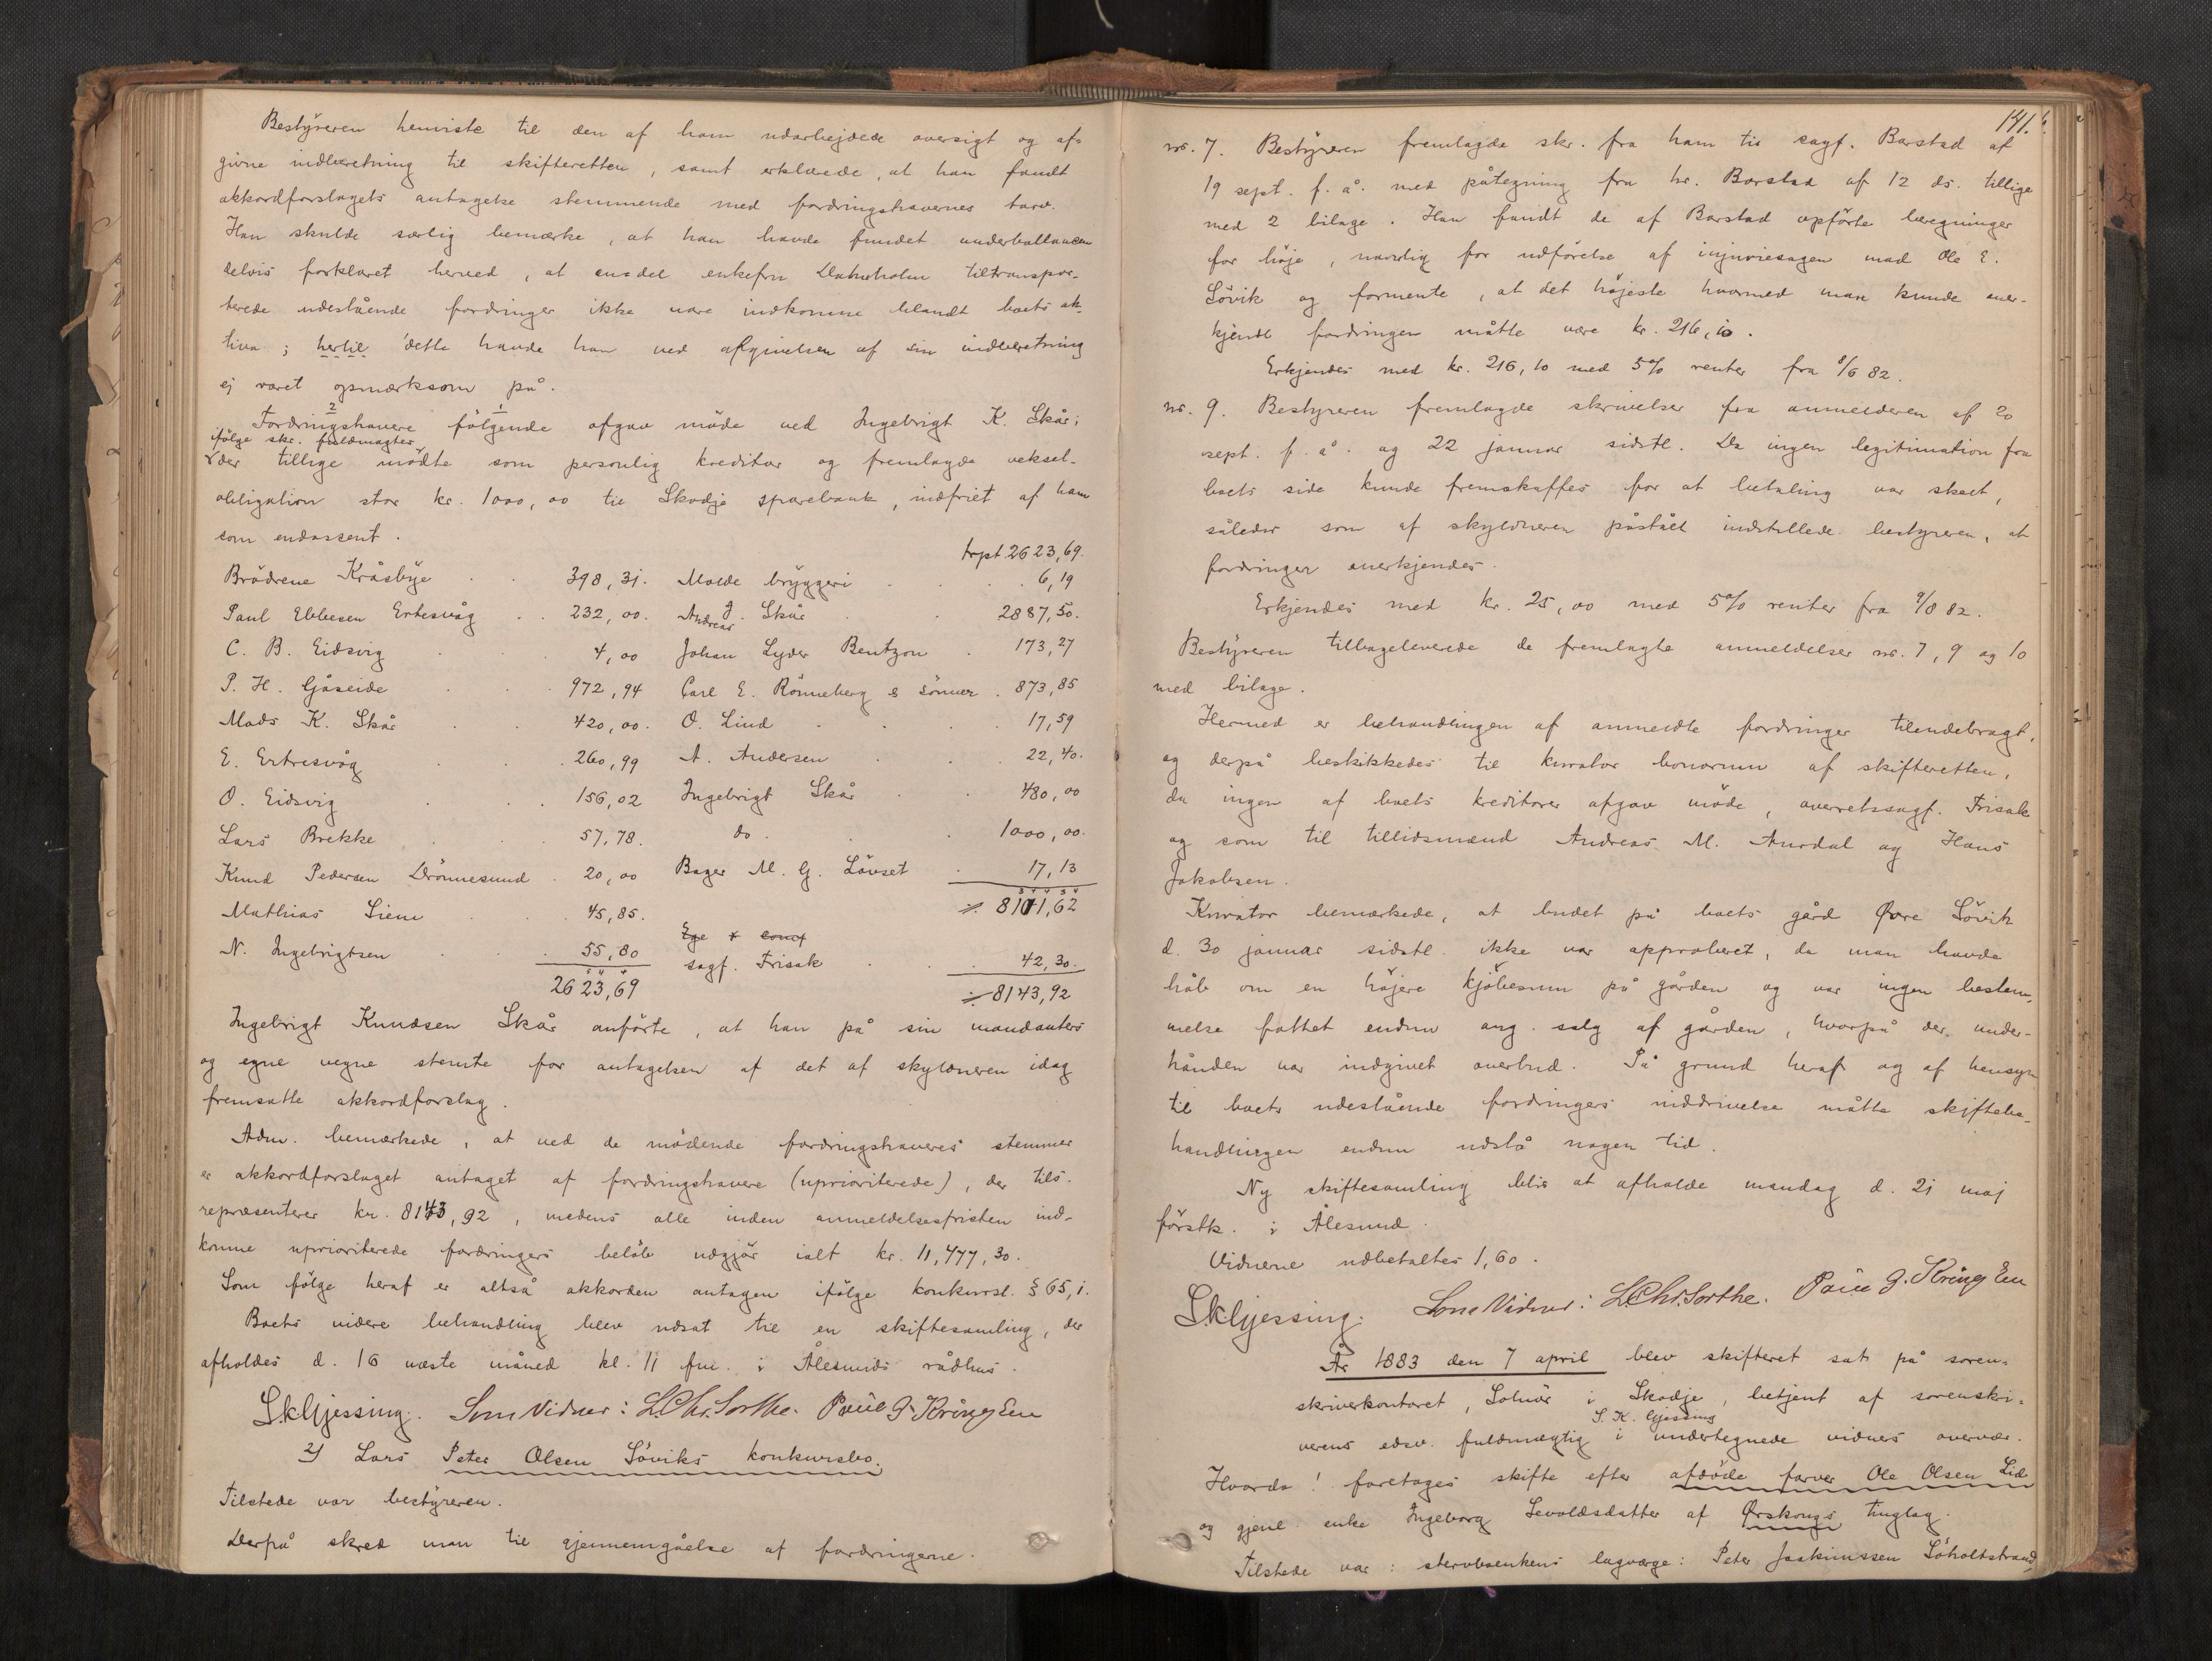 Bestyreren henviste til den af ham udarbejdede oversigt og af-
givne indberetning til skifteretten, samt erklærede, at han fandt
akkordforslagets antagelse stemmende med fordringshavernes tarv.
Han skulde særlig bemærke, at han havde fundet underballancen
delvis forklaret herved, at endel enkefru Daknholm tiltranspor-
terede udestående fordringer ikke vare indkomne blandt boets ak-
tiva; hertil dette havde han ved afgivelsen af sin indberetning
ej været opmærksom på.
2 1
Fordringshavere følgende afgav møde ved Ingebrigt K. Skår;
ifølge skr. fuldmagter
der tillige mødte som personlig kreditor og fremlagde veksel-
obligation stor kr. 1000,00 til Skodje sparebank, indfriet af ham
som endossent.
trpt 2623,69.
Brødrene Kråsbye 398,31. Molde bryggeri 6,19
Paul Ebbesen Ertesvåg 232,00. Andreas J. Skår 2887,50.
C. B. Eidsvig 4,00 Johan Lyder Bentzon 173,27
P. H. Gåseide 972,94 Carl E. Rønneberg & sønner 873,85
Mads K. Skår 420,00. O. Lind 17,59
E. Ertresvåg 260,99 A. Andersen 22,40.
O. Eidsvig 156,02 Ingebrigt Skår 480,00
Lars Brekke 57,78. do. 1000,00.
Knud Pedersen Drønnesund 20,00 Bager M. G. Løvset 17,13
Mathias Liem 45,85. ÷ 8101,62
Ege & comp
N. Ingebrigtsen 55,80 sagf. Frisak 42,30.
2623,69 ÷ 8143,92
Ingebrigt Knudsen Skår anførte, at han på sin mandanters
og egne vegne stemte for antagelsen af det af skyldneren idag
fremsatte akkordforslag.
Adm. bemærkede, at ved de mødende fordringshaveres stemmer
er akkordforslaget antaget af fordringshavere (uprioriterede), der tils.
repræsenterer kr. 8143,92, medens alle inden anmeldelsesfristen ind-
komne uprioriterede fordringers beløb udgjør ialt kr. 11,477,30.
Som følge heraf er altså akkorden antagen ifølge konkursl. § 65,1.
Boets videre behandling blev udsat til en skiftesamling, der
afholdes d. 16 næste måned kl. 11 fm. i Ålesunds rådhus.
S.K.Gjessing. Som Vidner: L.Chr.Sorthe. Paul G.
2) Lars Peter Olsen Søviks konkursbo.
Tilstede var bestyreren.
Derpå skred man til gjennemgåelse af fordringerne.
141.
no. 7. Bestyreren fremlagde skr. fra ham til sagf. Barstad af
19 sept. f. å. med påtegning fra hr. Barstad af 12 ds. tillige
med 2 bilage. Han fandt de af Barstad opførte beregninger
for høje, navnlig for udførelse af injuriesagen mod Ole E.
Søvik og formente, at det højeste hvormed man kunde aner-
kjende fordringen måtte være kr. 216,10.
Erkjendes med kr. 216,10 med 5% renter fra 8/6 82.
no. 9. Bestyreren fremlagde skrivelser fra anmelderen af 20
sept. f. å. og 22 januar sidstl. Da ingen legitimation fra
boets side kunde fremskaffes for at betaling var skeet,
således som af skyldneren påstået indstillede bestyreren, at
fordringen anerkjendes.
Erkjendes med kr. 25,00 med 5% renter fra 9/8 82.
Bestyreren tilbageleverede de fremlagte anmeldelser no. 7, 9 og 10
med bilage.
Hermed er behandlingen af anmeldte fordringer tilendebragt,
og derpå beskikkedes til kurator bonorum af skifteretten,
da ingen af boets kreditorer afgav møde, overretssagf. Frisak
og som til tillidsmænd Andreas M. Aurdal og Hans
Jakobsen.
Kurator bemærkede, at budet på boets gård Øvre Søvik
d. 30 januar sidstl. ikke var approberet, da man havde
håb om en højere kjøbesum på gården og var ingen bestem-
melse fattet endnu ang. salg af gården, hvorpå der under-
hånden var indgivet overbud. På grund heraf og af hensyn
til boets udestående fordringers inddrivelse måtte skiftebe-
handlingen endnu udstå nogen tid.
Ny skiftesamling blir at afholde mandag d. 21 maj
førstk. i Ålesund.
Vidnerne udbetaltes 1,60.
S.K.Gjessing. Som Vidner: L.Chr.Sorthe. Paul G.
År 1883 den 7 april blev skifteret sat på soren-
skriverkontoret, Solnør i Skodje, betjent af sorenskri-
S. K. Gjessing
verens edsv. fuldmægtig i undertegnede vidners overvær.
Hvorda! foretoges skifte efter afdøde farver Ole Olsen Lid
og gjenl. enke Ingeborg Sevaldsdatter af Ørskougs tinglag.
Tilstede var: stervboenkens lagværge: Peter Joakimssen Søholtstrand,